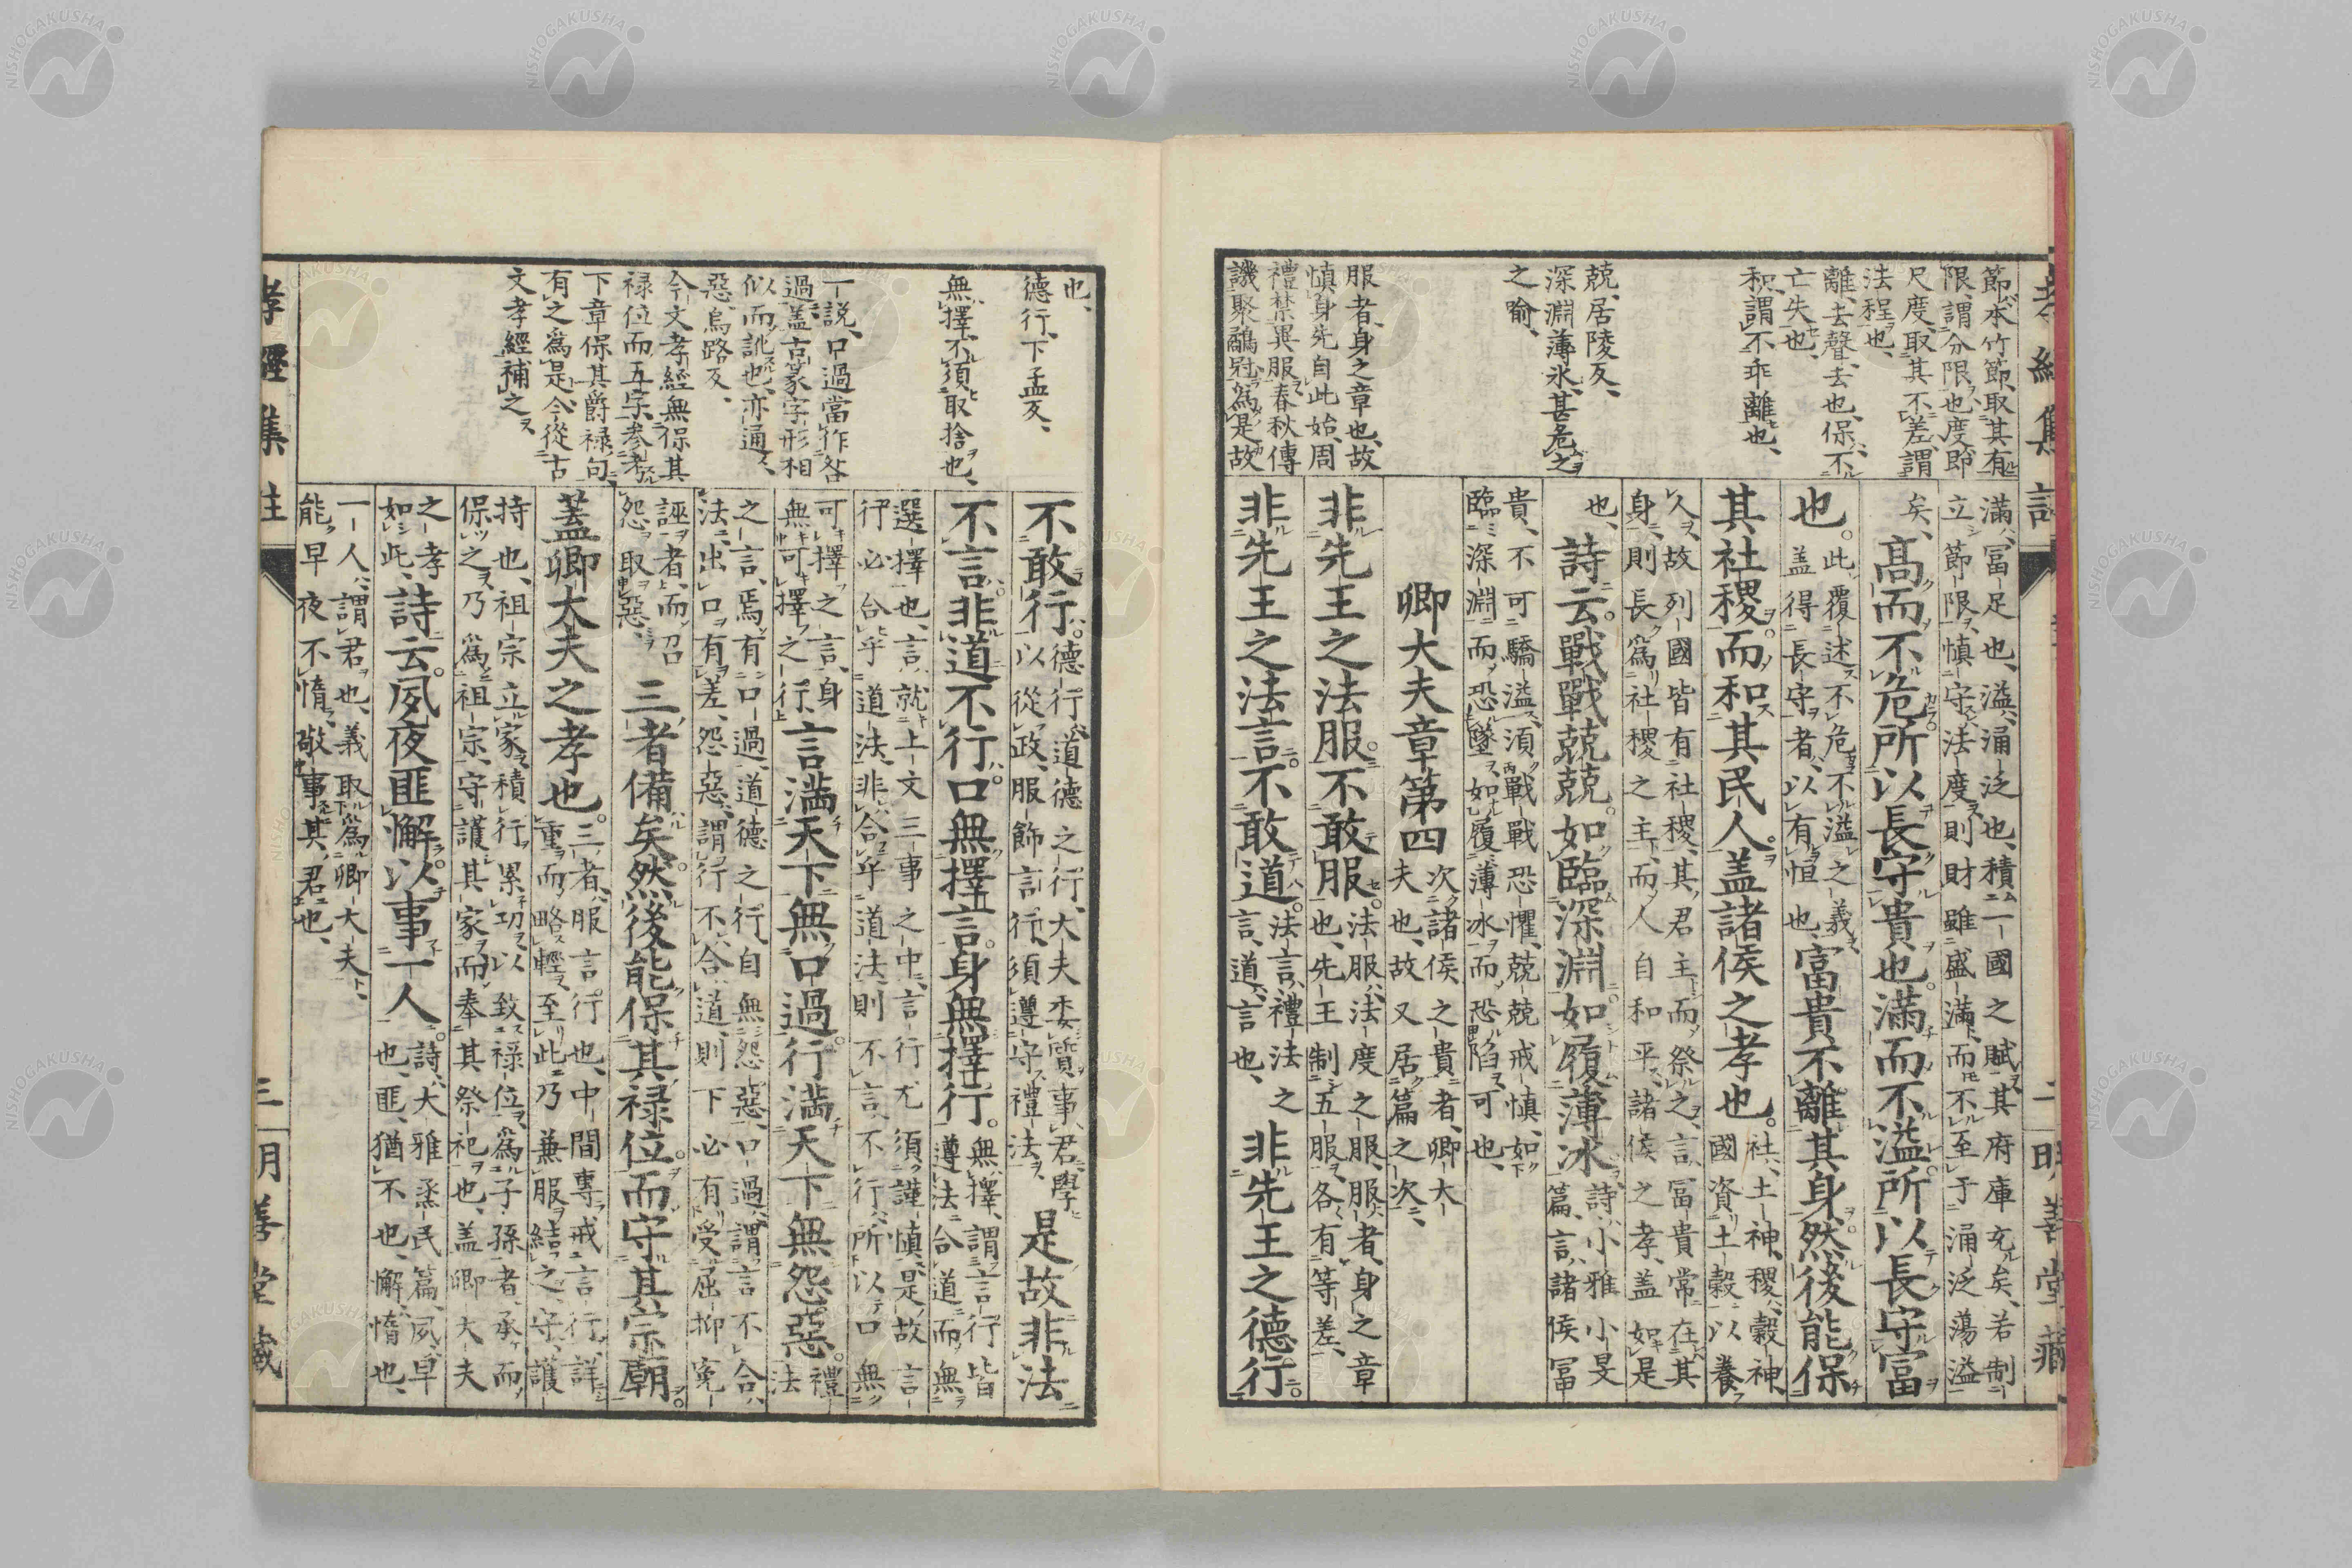 節、本竹節、取其有
限、謂分限也、度、即
尺度、取其不差、謂
法程也、
離、去聲、去也、保、不
亡失也、
和、謂不乖離也、
兢、居陵反、
深淵薄氷、甚危之
之喻、
服者、身之章也、故
慎身先自此始、周
禮禁異服、春秋傳
譏聚鷸冠、爲是故
滿、富足也、溢、涌泛也、積一國之賦、其府庫充矣、若制
立節限、慎守法度、則財雖盛滿、而不至于涌泛蕩溢
矣、高而不危。所以長守貴也。滿而不溢。所以長守富
也。此覆述不危不溢之義、
蓋得長守者、以有恒也、富貴不離其身。然後能保
其社稷。而和其民人。蓋諸侯之孝也。社、土神、稷、穀神、
國資土穀以養
人、故列國皆有社稷、其君主而祭之、言富貴常在其
身、則長爲社稷之主、而人自和平、諸侯之孝、蓋如是
也、詩云。戰戰兢兢。如臨深淵。如履薄冰。詩、小雅小旻
篇、言諸侯富
貴、不可驕溢、須戰戰恐懼、兢兢戒慎、如
臨深淵而恐墜、如履薄冰而恐陷可也、
卿大夫章第四 次諸侯之貴者、卿大
夫也、故又居篇之次、
非先王之法服。不敢服。法服、法度之服、服者、身之章
也、先王制五服、各有等差、
非先王之法言。不敢道。法言、禮法之
言、道、言也、非先王之德行。
孝經集註 三 明善堂藏
也、
德行、下孟反、
無擇、不須取捨也、
一說、口過當作咎
過、蓋古篆字形相
似而訛也、亦通、
惡、烏路反、
今文孝經無保其
祿位而五字、參考
下章保其爵祿句、
有之爲是、今從古
文孝經補之、
不敢行。德行、道德之行、大夫委質事君、學
以從政、服飾言行、須遵守禮法、是故非法
不言。非道不行。口無擇言。身無擇行。無擇、謂言行皆
遵法合道、而無
選擇也、言、就上文三事之中、言行尤須謹慎、是故言
行必合乎道法、非合乎道法、則不言、不行、所以口無
可擇之言、身
無可擇之行、言滿天下。無口過。行滿天下。無怨惡。禮
法
之言、焉有口過、道德之行、自無怨惡、口過、謂言不合
法、出口有差、怨惡、謂行不合道、則下必有受屈抑寃
誣者、而召
怨取惡、三者備矣。然後能保其祿位。而守其宗廟。
蓋卿大夫之孝也。三者、服言行也、中間專戒言行、詳
重而略輕、至此乃兼服結之、守、護
持也、祖宗立家、積行累功、以致祿位、爲子孫者、承而
保之、乃爲祖宗守護其家、而奉其祭祀也、蓋卿大夫
之孝
如此、詩云。夙夜匪懈。以事一人。詩、大雅烝民篇、夙、早
也、匪、猶不也、懈、惰也、
一人、謂君也、義取爲卿大夫、
能早夜不惰、敬事其君也、
孝經集註 三 明善堂藏